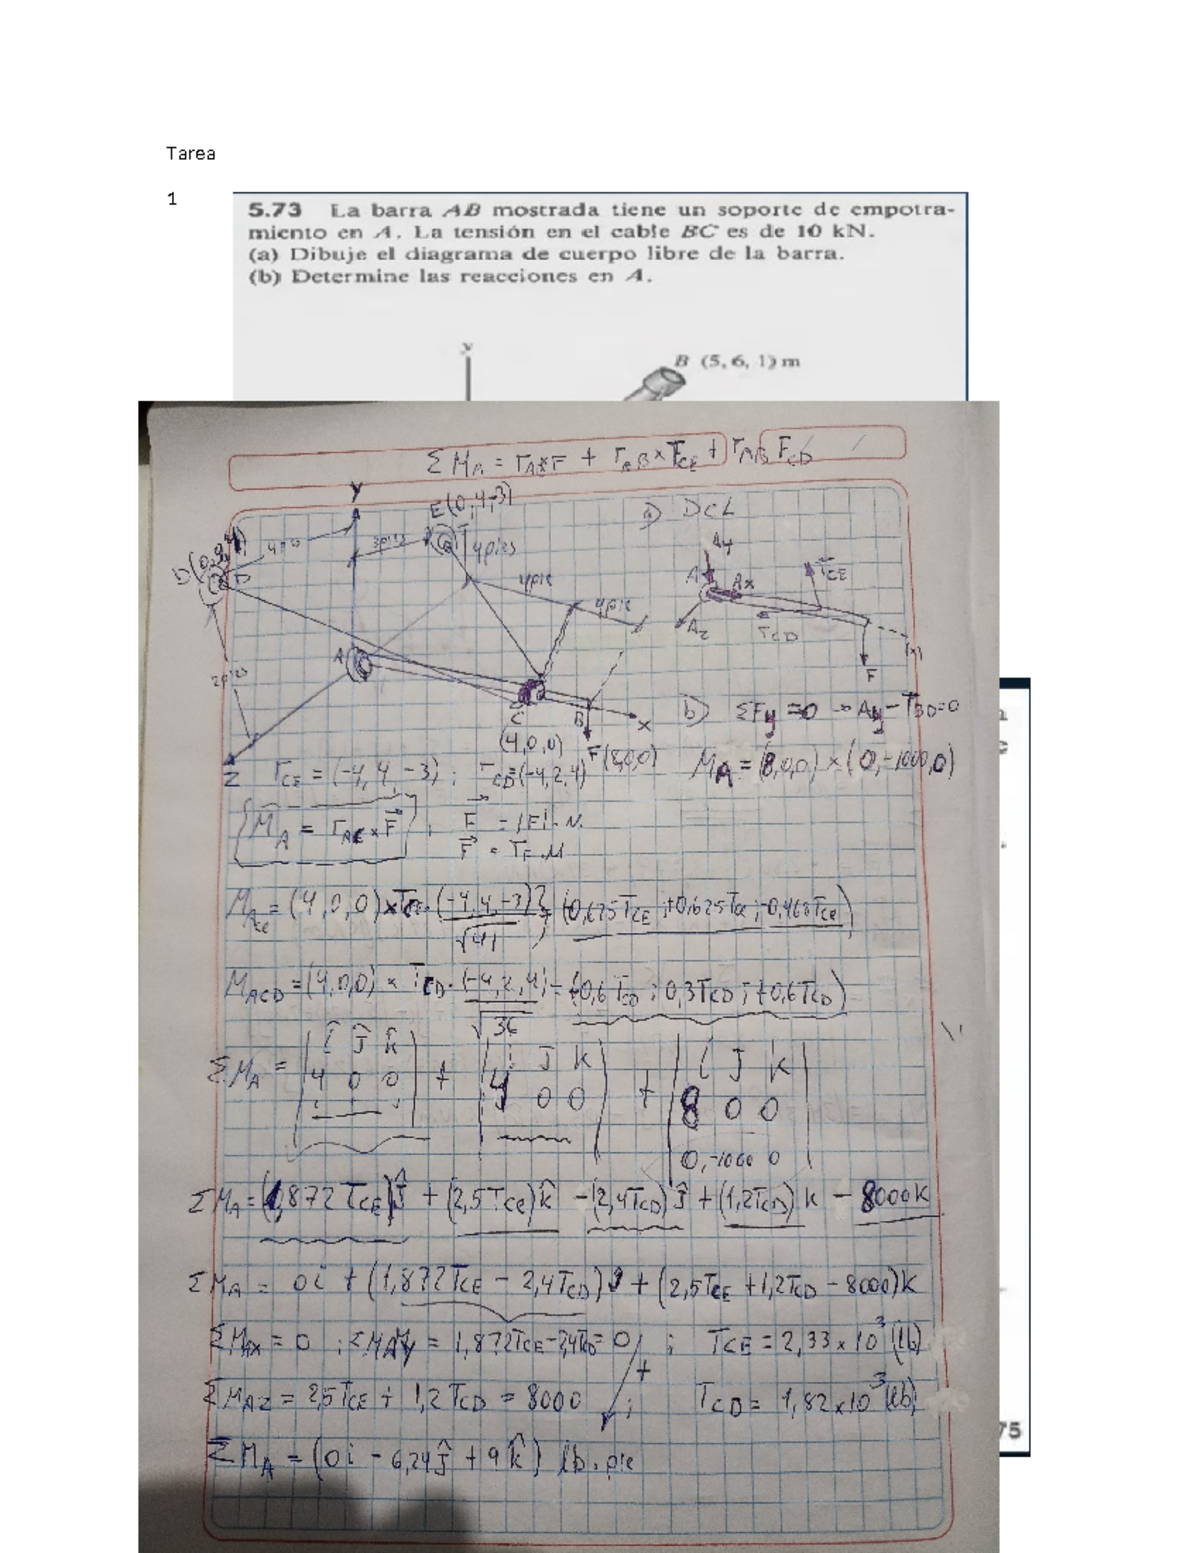 Tarea
1
5.73 La barra AB mostrada tiene un soporte de empotra-
miento en A. La tensión en el cable BC es de 10 kN.
(a) Dibuje el diagrama de cuerpo libre de la barra.
(b) Determine las reacciones en A.
y
B (5, 6, 1) m
ΣM_A = r_AB×F + r_AB×T_CE + r_AB F_CD
Y
E(0,4,-3)
a) DCL
4 pies
4pie
4pie
Ay
A
Ax
T_CE
Az
T_CD
F
(x)
D
A
C
B
x
(4,0,0)
F (8,0,0)
Z
b) ΣFy = 0 → Ay - T_BD = 0
r_CE = (-4, 4, -3) ; r_CD = (-4, 2, 4)
M_A = (8,0,0) × (0, -1000, 0)
M_A = r_AC × F ; F = |F| · N.
F = T_F · M
M_ACE = (4,0,0) × T_CE · (-4, 4, -3)/√41 = (-0,625 T_CE ; +0,625 T_CE ; -0,468 T_CE)
M_ACD = (4,0,0) × T_CD · (-4, 2, 4)/√36 = (-0,6 T_CD ; 0,3 T_CD ; +0,6 T_CD)
ΣM_A = | i j k | + | i j k | + | i j k |
4 0 0 4 0 0 8 0 0
0, -1000 0
ΣM_A = (1,872 T_CE) ĵ + (2,5 T_CE) k̂ - (2,4 T_CD) ĵ + (1,2 T_CD) k - 8000k
ΣM_A = 0i + (1,872 T_CE - 2,4 T_CD) J + (2,5 T_CE + 1,2 T_CD - 8000) k
ΣM_AX = 0 ; ΣM_AY = 1,872 T_CE - 2,4 T_CD = 0 ; T_CE = 2,33 x 10³ (lb)
ΣM_AZ = 2,5 T_CE + 1,2 T_CD = 8000 ; T_CD = 1,82 x 10³ (lb)
ΣM_A = (0i - 6,24 ĵ + 9 k̂) lb.pie
75